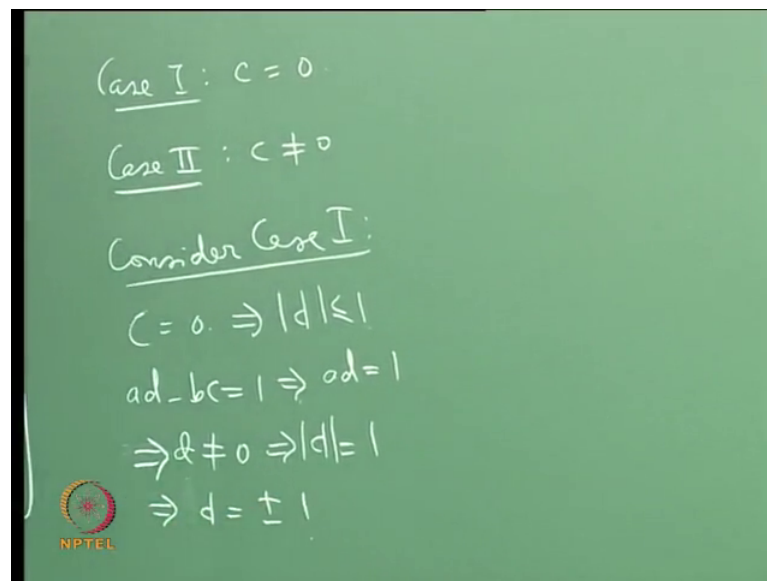 Case I : c = 0.
Case II : c ≠ 0
Consider Case I :
c = 0. ⇒ |d| ≤ 1
ad - bc = 1 ⇒ ad = 1
⇒ d ≠ 0 ⇒ |d| = 1
⇒ d = ± 1
NPTEL